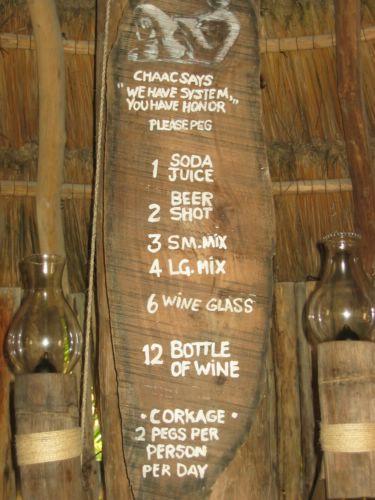 CHAAC SAYS
"WE HAVE SYSTEM,
YOU HAVE HONOR"
PLEASE PEG
1 SODA
JUICE
2 BEER
SHOT
3 SM. MIX
4 LG. MIX
6 WINE GLASS
12 BOTTLE
OF WINE
• CORKAGE •
2 PEGS PER
PERSON
PER DAY